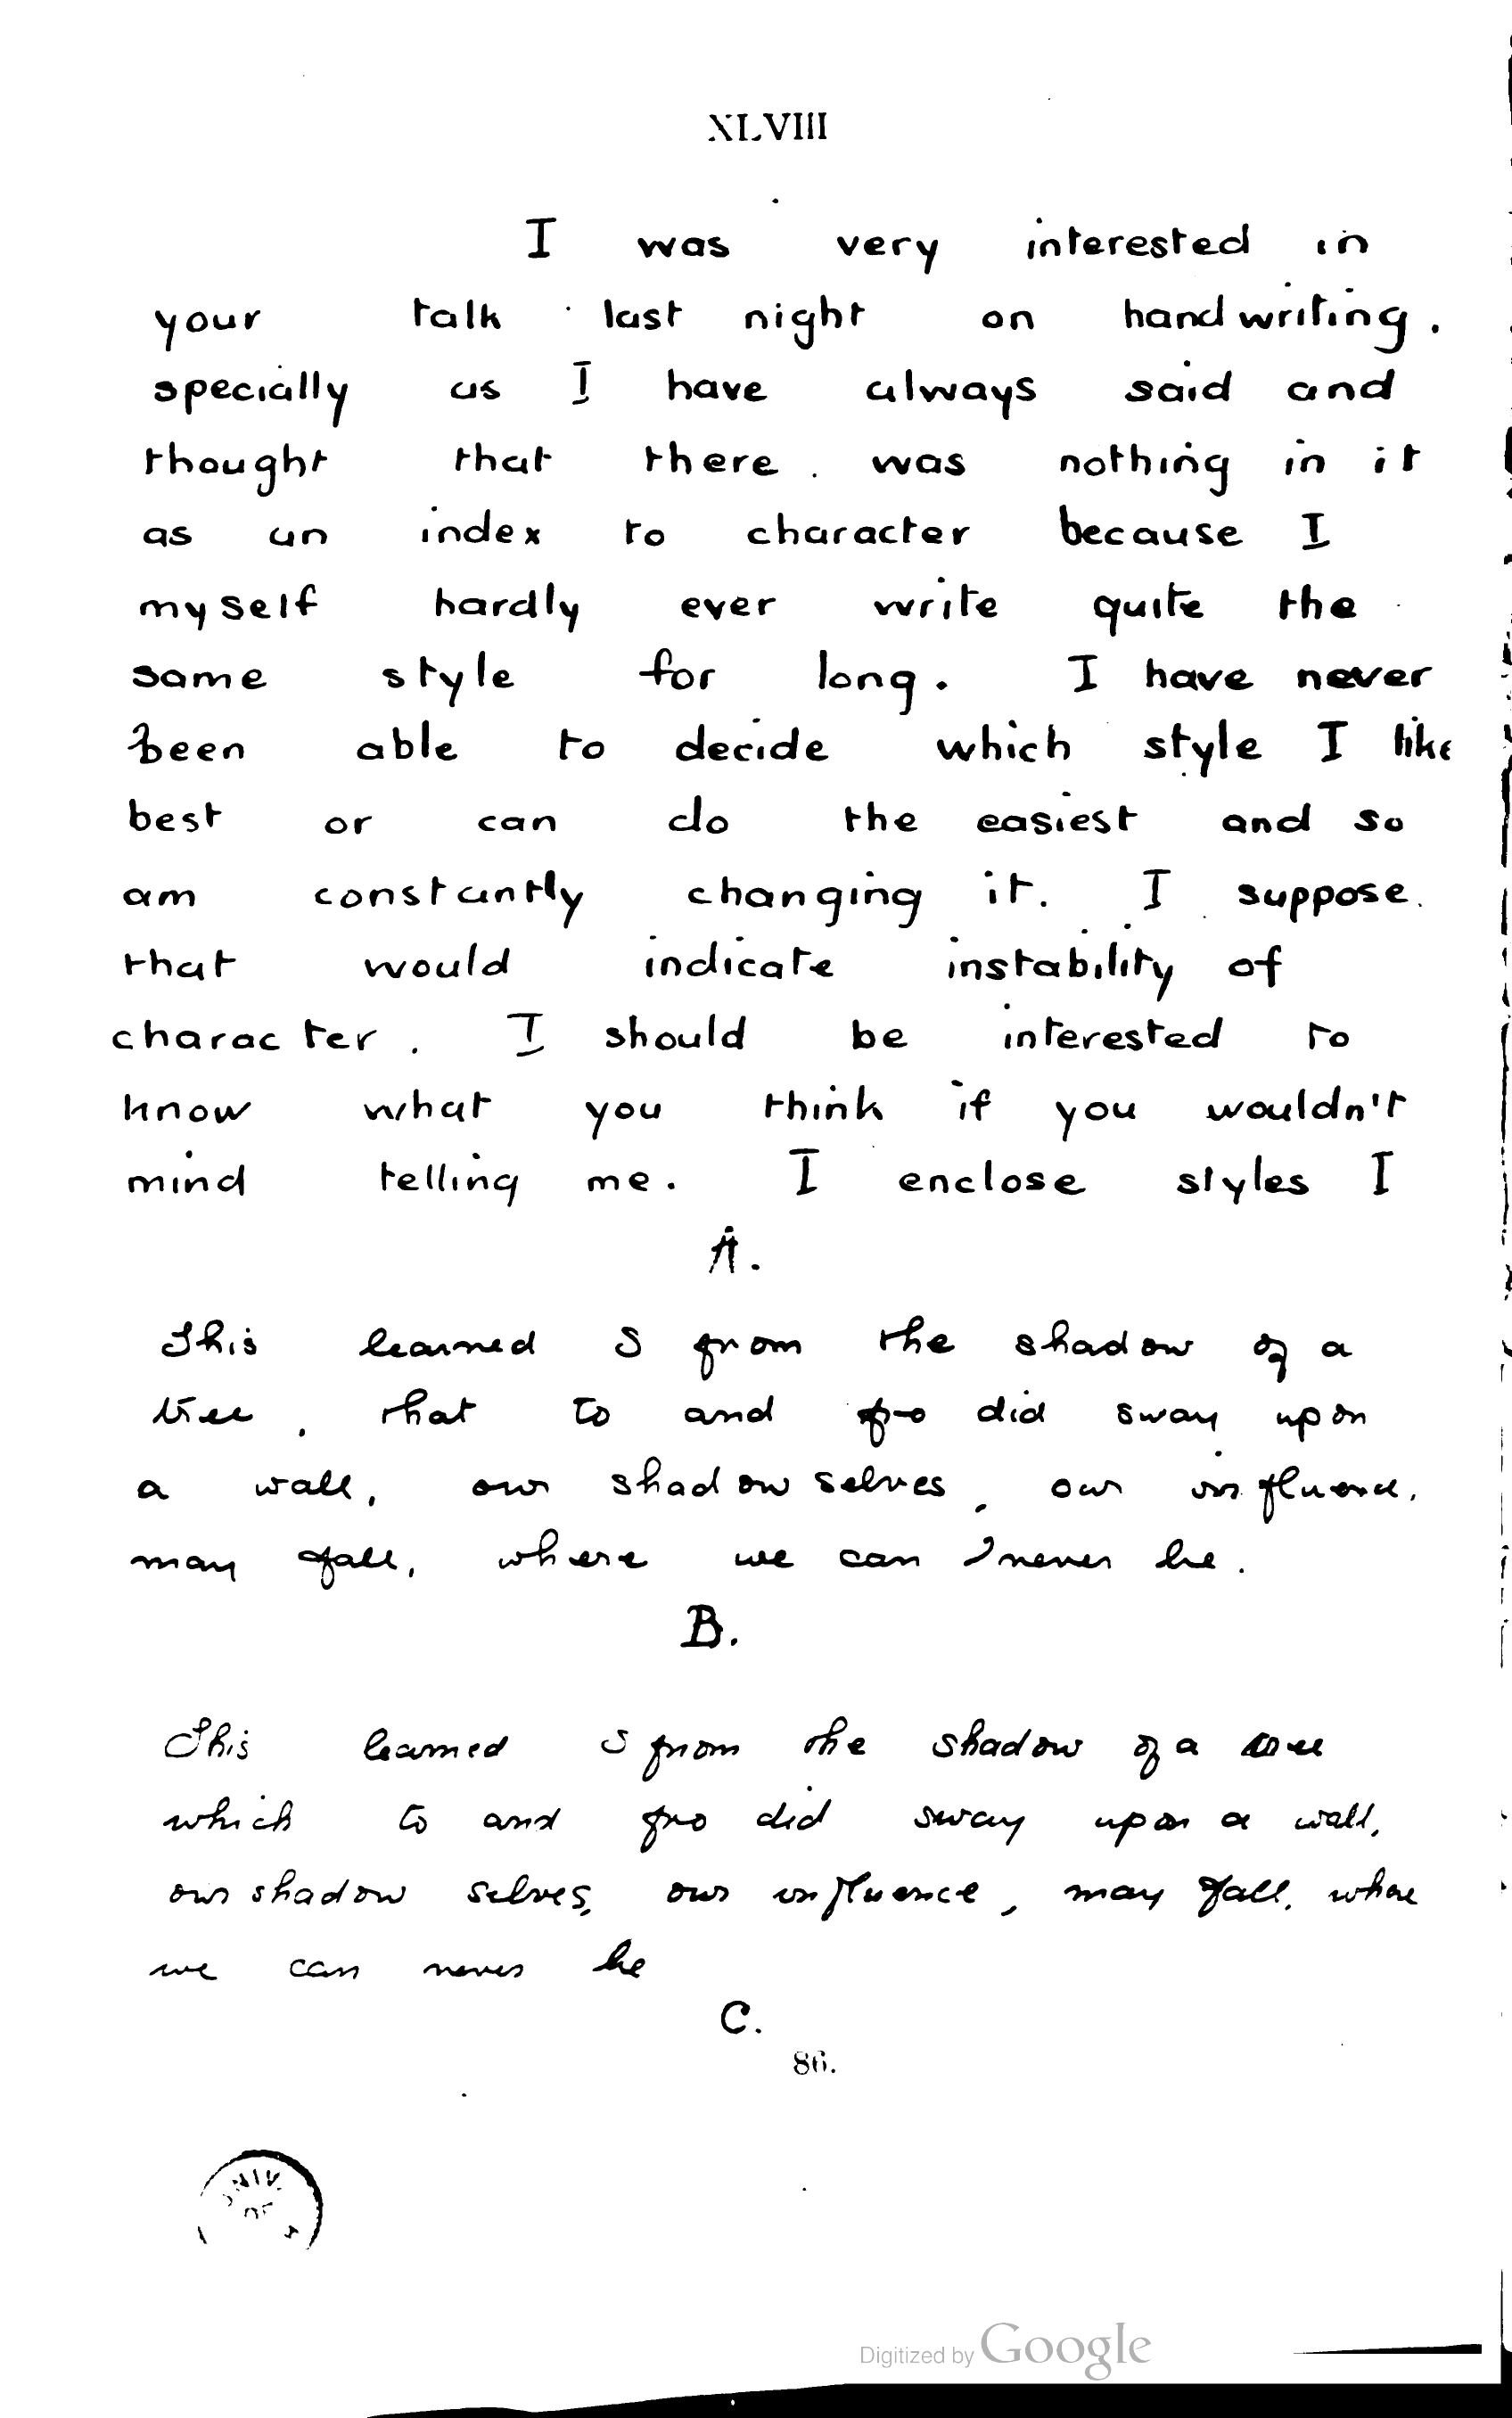 XLVIII
I was very interested in
your talk last night on handwriting.
specially as I have always said and
thought that there was nothing in it
as an index to character because I
myself hardly ever write quite the
same style for long. I have never
been able to decide which style I like
best or can do the easiest and so
am constantly changing it. I suppose
that would indicate instability of
character. I should be interested to
know what you think if you wouldn't
mind telling me. I enclose styles I
A.
This learned I from the shadow of a
tree, that to and fro did sway upon
a wall, our shadow selves, our influence,
may fall, where we can never be.
B.
This learned I from the shadow of a tree
which to and fro did sway upon a wall,
our shadow selves, our influence, may fall, where
we can never be
C.
86.
Digitized by Google